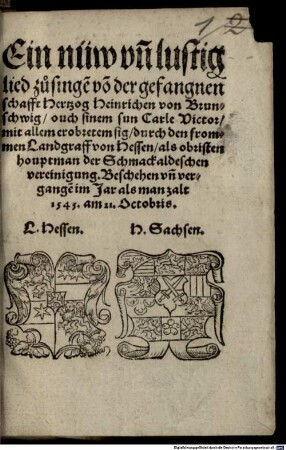 1 2
Ein nüw vñ lustig
lied zů singē vō der gefangnen
schafft Hertzog Heinrichen von Brun-
schwig / ouch sinem sun Carle Victor /
mit allem erobretem sig / durch den from-
men Landgraff von Hessen / als obristen
houptman der Schmackaldeschen
vereinigung. Beschehen vñ ver-
gangē im Jar als man zalt
1545. am 21. Octobris.
L. Hessen. H. Sachsen.